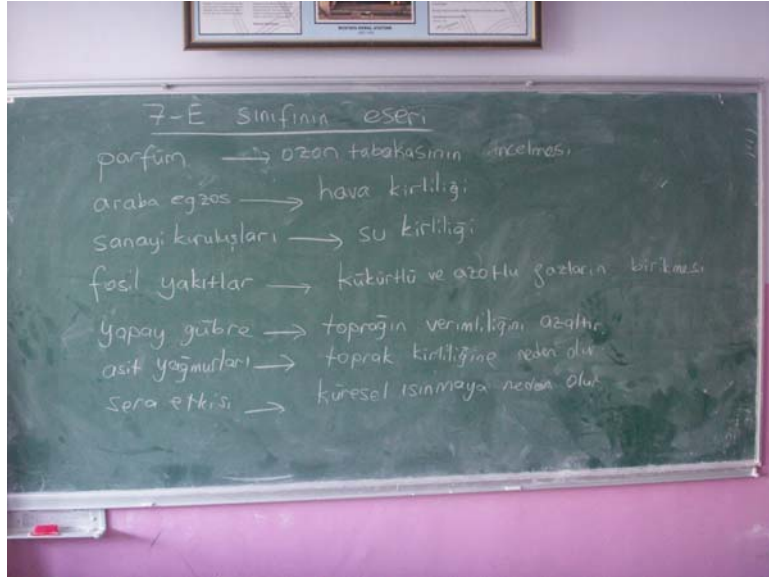 MUSTAFA KEMAL ATATÜRK
7-E sınıfının eseri
parfüm → ozon tabakasının incelmesi
araba egzos → hava kirliliği
sanayi kuruluşları → su kirliliği
fosil yakıtlar → kükürtlü ve azotlu gazların birikmesi
yapay gübre → toprağın verimliliğini azaltır.
asit yağmurları → toprak kirliliğine neden olur
sera etkisi → küresel ısınmaya neden olur